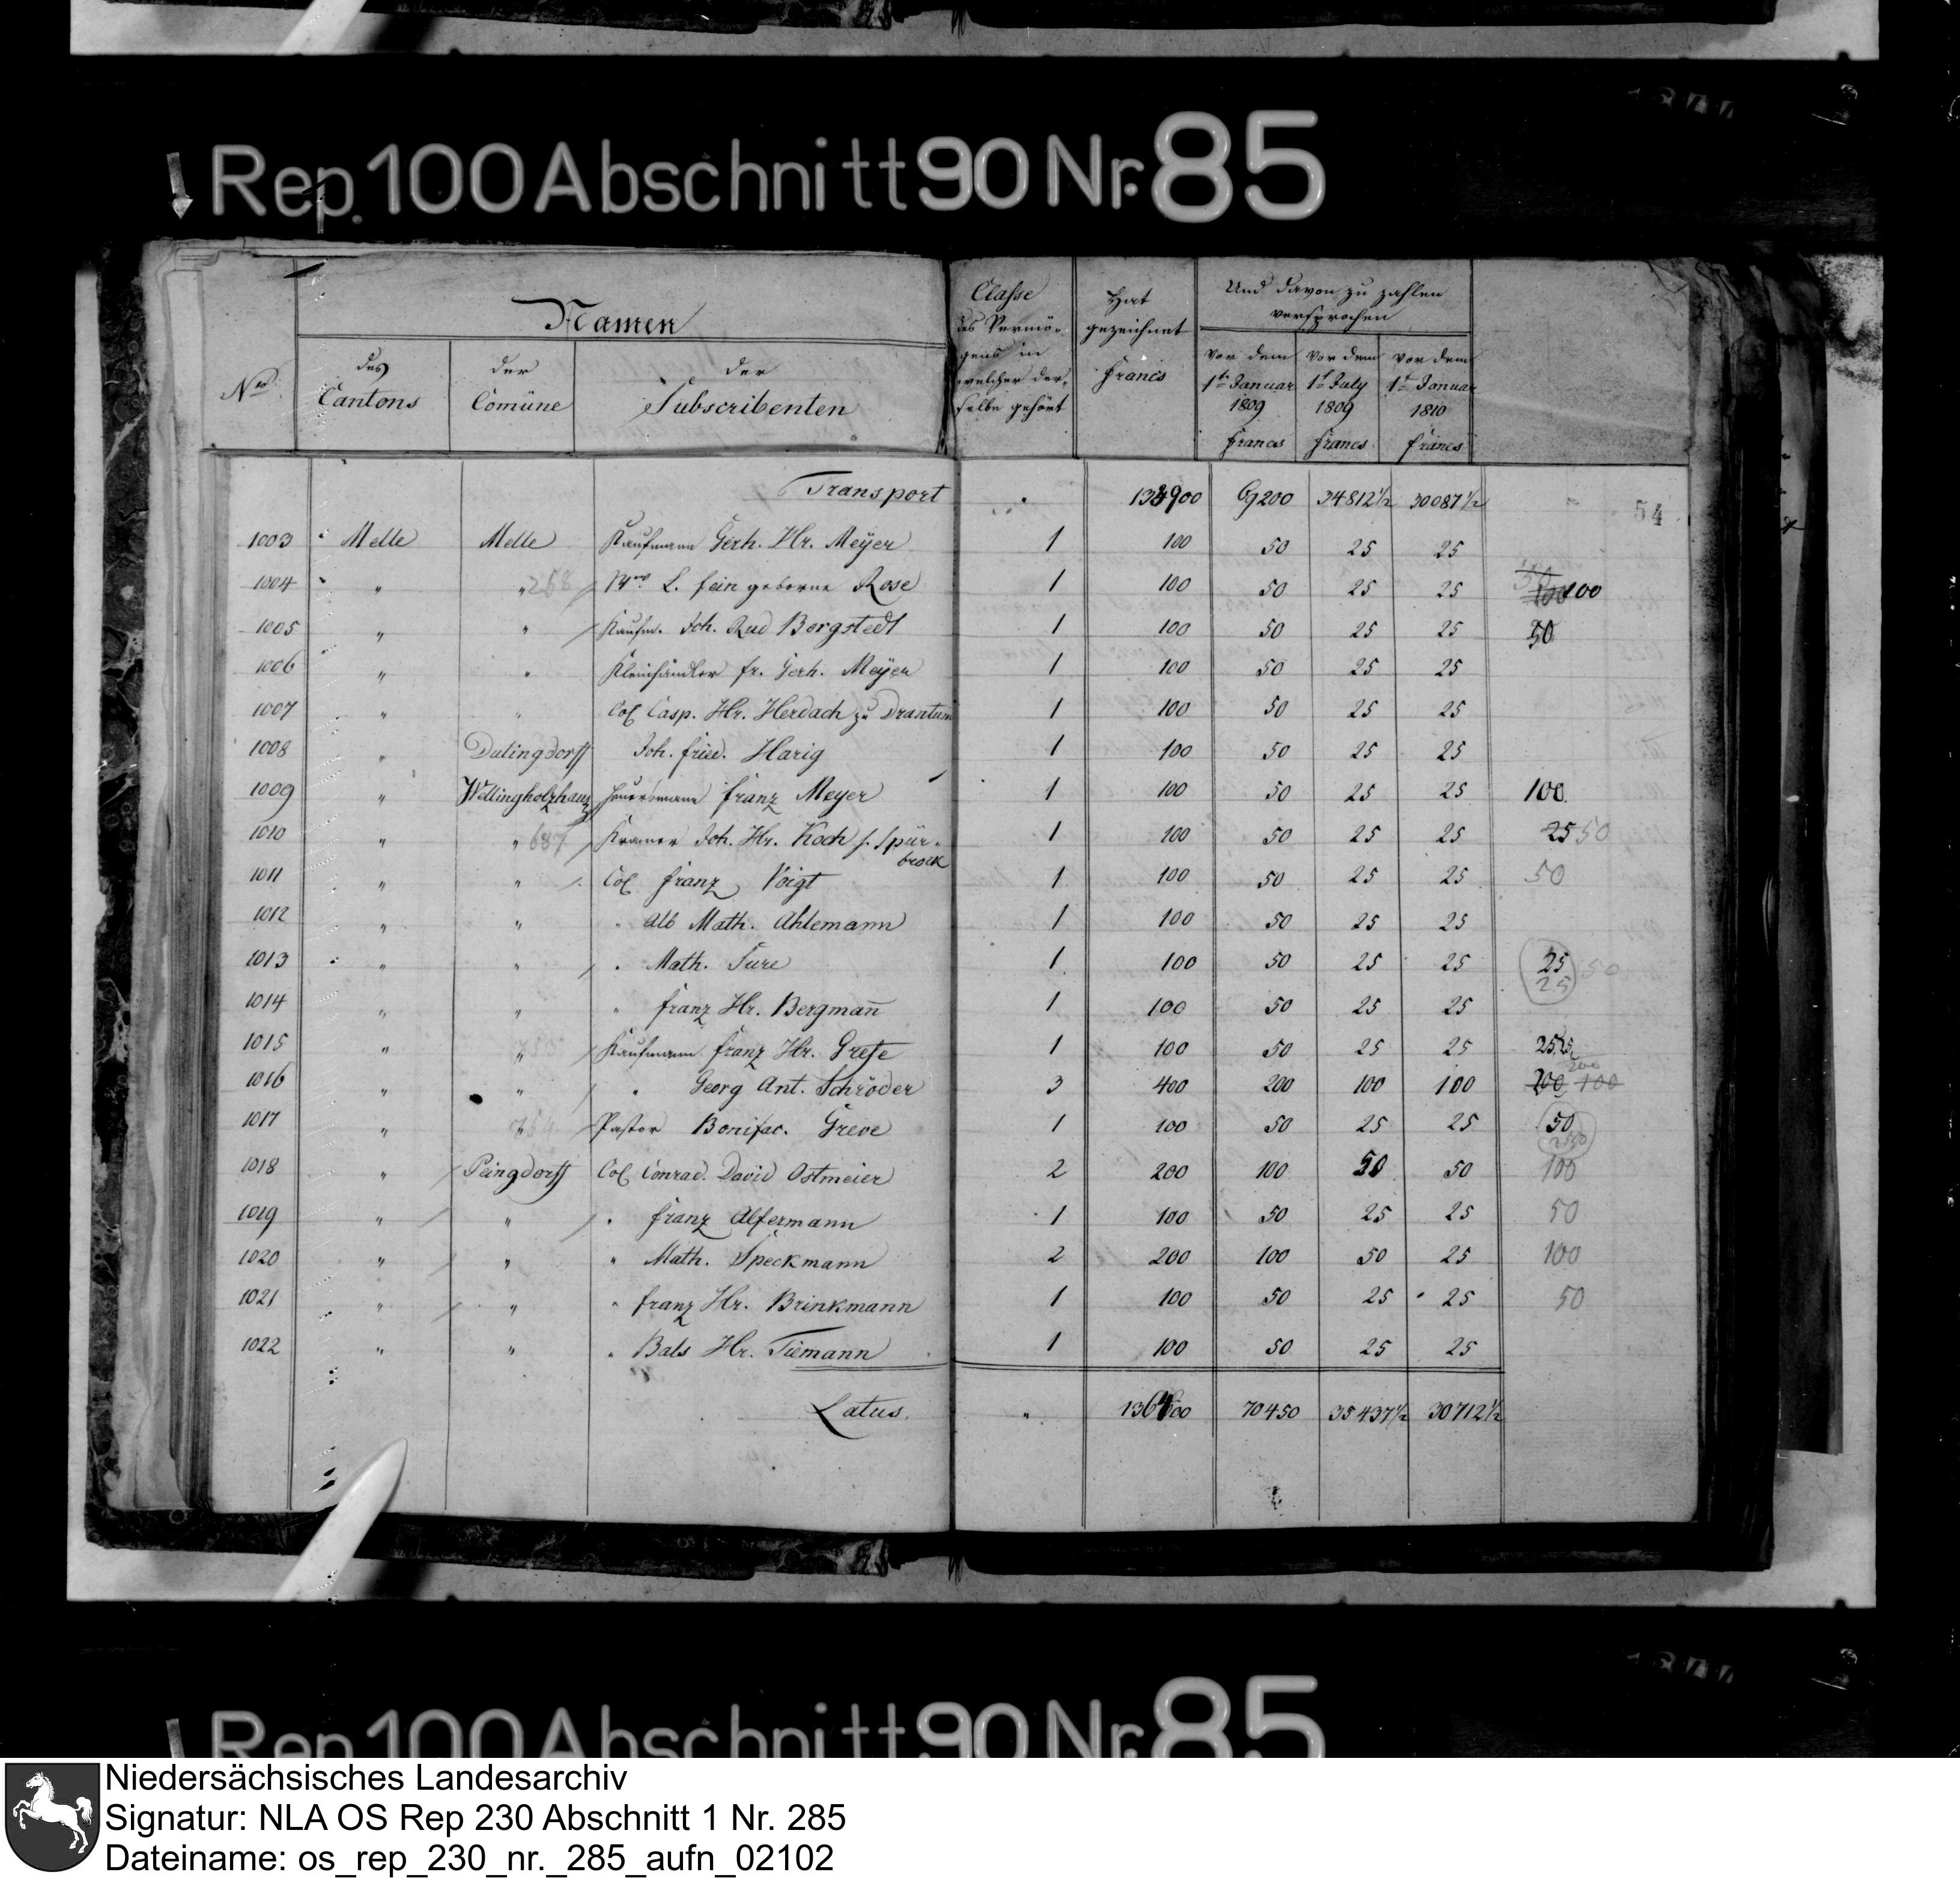 Rep. 100 Abschnitt 90 Nr. 85
Namen
No. des Cantons der Comüne der Subscribenten
Classe des Vermögens in welcher derselbe gehört
Hat gezeichnet Francs
Und davon zu zahlen versprochen
vor dem 1ten Januar 1809 Francs
vor dem 1t July 1809 Francs
vor dem 1t Januar 1810 Francs
54
Transport 69200 34812½ 30087½
1003 Melle Melle Kaufmann Gerh. Hr. Meÿer 1 100 50 25 25
1004 " " 268 Wwe L. fein geborne Rose 1 100 50 25 25 100
1005 " " Kaufm. Joh. Rud Borgstedt 1 100 50 25 25 50
1006 " " Kleinhändler fr. Gerh. Meÿer 1 100 50 25 25
1007 " " Col Casp. Hr. Herdach zu Drantum 1 100 50 25 25
1008 " Dulingdorff Joh. fried. Harig 1 100 50 25 25
1009 " Wellingholzhauz Heuersmann franz Meyer 1 100 50 25 25 100
1010 " " 687 Kramer Joh. Hr. Koch s. Spürbrock 1 100 50 25 25 25 50
1011 " " Col franz Voigt 1 100 50 25 25 50
1012 " " " Alb Math. Ahlemann 1 100 50 25 25
1013 " " " Math. Sure 1 100 50 25 25 25 50
25
1014 " " " franz Hr. Bergmañ 1 100 50 25 25
1015 " " Kaufmann franz Hr. Grefe 1 100 50 25 25 25 25
1016 " " " Georg Ant. Schröder 3 400 200 100 100 200 100
200
1017 " " Pastor Bonifac. Greve 1 100 50 25 25 50
1018 " Peingdorff Col Conrad. David Ostmeier 2 200 100 50 50 100
1019 " " " franz Alfermann 1 100 50 25 25 50
1020 " " " Math. Speckmann 2 200 100 50 25 100
1021 " " " franz Hr. Brinkmann 1 100 50 25 25 50
1022 " " " Bals Hr. Tiemann 1 100 50 25 25
Latus. " 70450 35437½ 30712½
Rep. 100 Abschnitt 90 Nr. 85
Niedersächsisches Landesarchiv
Signatur: NLA OS Rep 230 Abschnitt 1 Nr. 285
Dateiname: os_rep_230_nr._285_aufn_02102